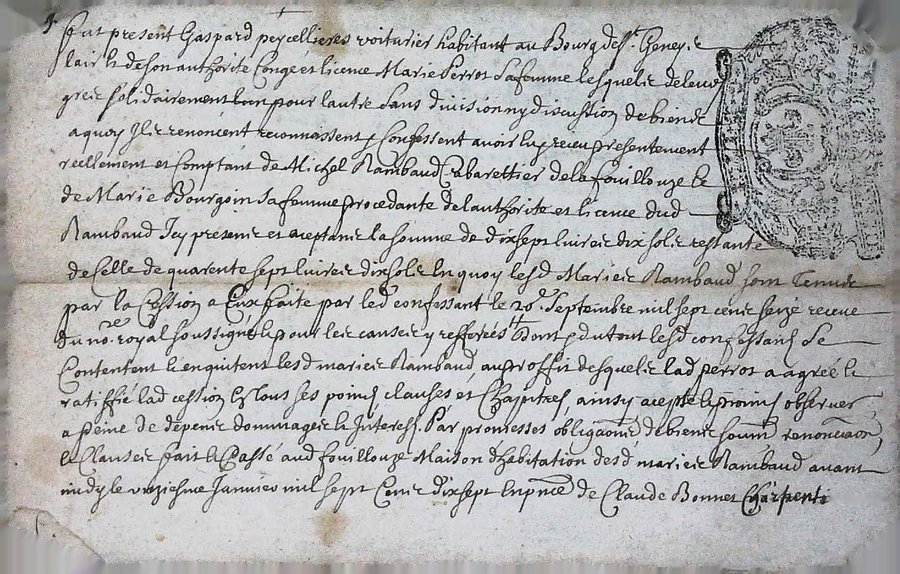 fut present Gaspard peycellieres voiturier habitant au Bourg de st Geney e
lair & de son authorité Conge et licence Marie Perrot sa femme lesquelz de leur
gree solidairement lun pour lautre sans division ny discution de biens
a quoy Ilz renoncent reconnoissent & confessent avoir heu & receu presentement
reellement et Comptant de Michel Rambaud Cabarettier de la fouillouze &
de Marie Bourgoin sa femme procedante de lauthorité et licence dud
Rambaud Icy presente et aceptante la somme de dixsept livres dix solz restante
de Celle de quarente sept livres dix solz En quoy lesd Mariez Rambaud sont Tenus
par la Cession a Eux faite par led confessant le 20e Septembre mil sept cens seize receue
du no.re royal soussigné & pour les causes y refferées Dont & du tout lesd confessans se
Contentent & enquitent lesd mariez Rambaud, au proffit desquelz lad perrot a agréé &
ratiffié lad cession En tous ses poincts clauses et Chappitres, ainsy acepté & promis observer
a peine de depens dommages & Interests. Par promesses obligaons de biens soum renonciaon,
& Clauses fait & Passé aud fouillouze Maison d'habitation desd mariez Rambaud avant
midy le unziesme Janvier mil sept Cens dixsept En pnce de Claude Bonnet Charpenti